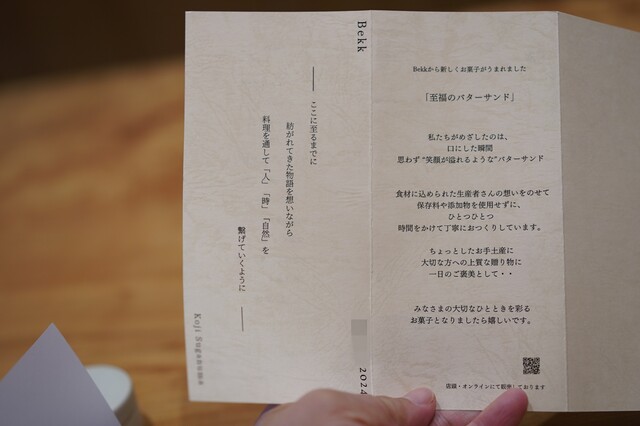 Bekk
ここに至るまでに
紡がれてきた物語を想いながら
料理を通して「人」「時」「自然」を
繋げていくように
Koji Suganuma
2024
Bekkから新しくお菓子がうまれました
「至福のバターサンド」
私たちがめざしたのは、
口にした瞬間
思わず“笑顔が溢れるような”バターサンド
食材に込められた生産者さんの想いをのせて
保存料や添加物を使用せずに、
ひとつひとつ
時間をかけて丁寧におつくりしています。
ちょっとしたお手土産に
大切な方への上質な贈り物に
一日のご褒美として・・
みなさまの大切なひとときを彩る
お菓子となりましたら嬉しいです。
店頭・オンラインにて販売しております